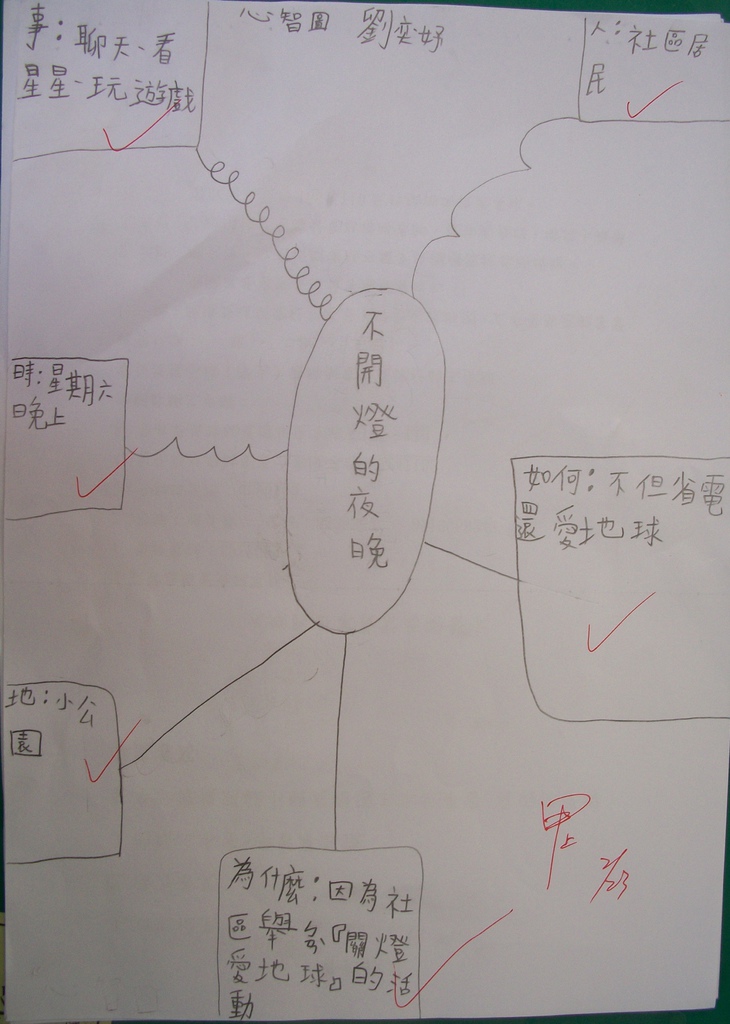 心智圖 劉奕妤
事：聊天、看
星星、玩遊戲
人：社區居
民
不開燈的夜晚
時：星期六
晚上
如何：不但省電
還愛地球
地：小公
園
為什麼：因為社
區舉名『關燈
愛地球』的活
動
甲上
2/23